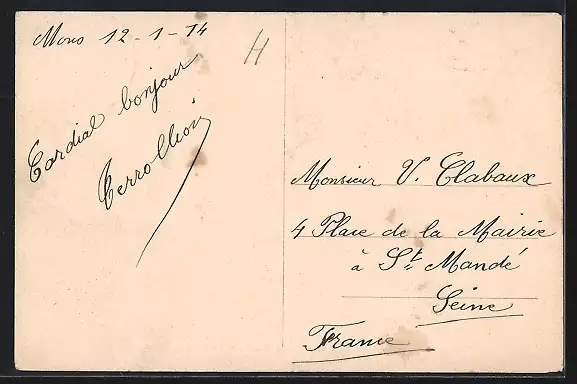 Mons 12-1-14
H
Cardial bonjour
Monsieur V. Clabaux
4 Place de la Mairie
à St. Mandé
Seine
France